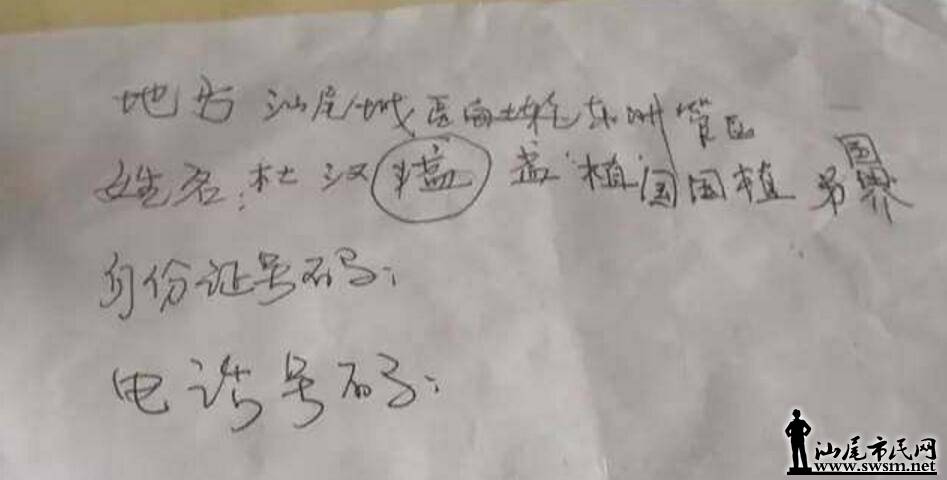 地方 汕尾城区 东洲管区
姓名:杜汉 植国国植 界 国
身份证号码:
电话号码:
汕尾市民网
www.swsm.net